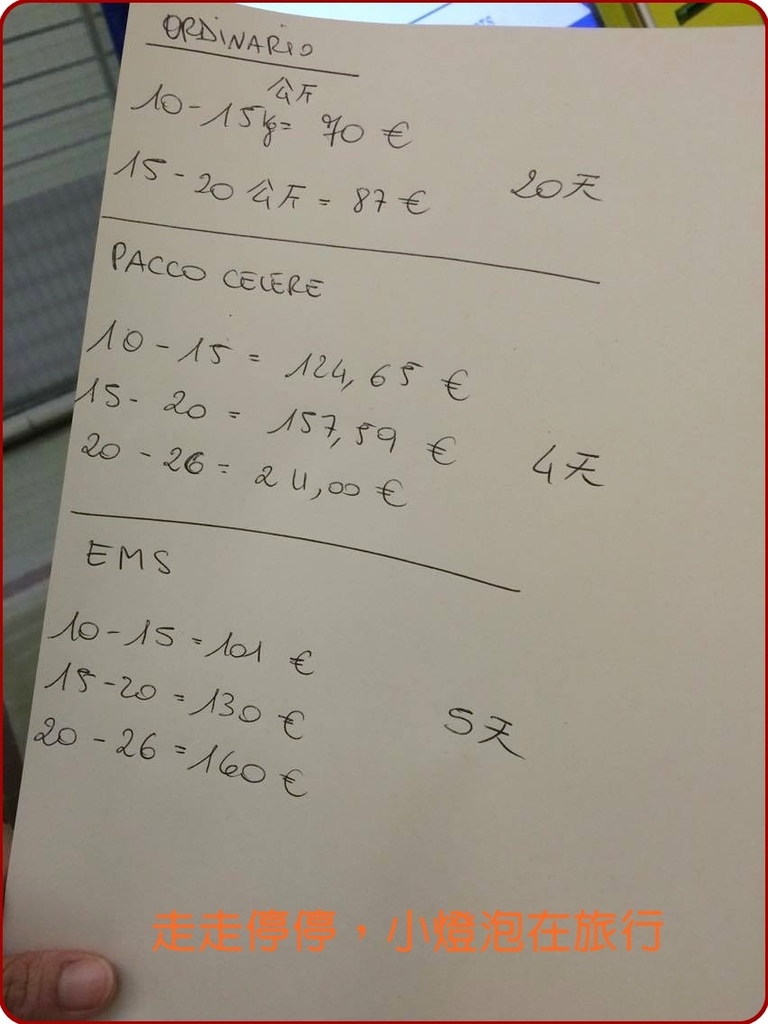 ORDINARIO
公斤
10-15kg= 70 €
15-20 公斤 = 87 €
20天
PACCO CELERE
10-15 = 124,65 €
15-20 = 157,59 €
20-26 = 211,00 €
4天
EMS
10-15 = 101 €
15-20 = 130 €
20-26 = 160 €
5天
走走停停，小燈泡在旅行